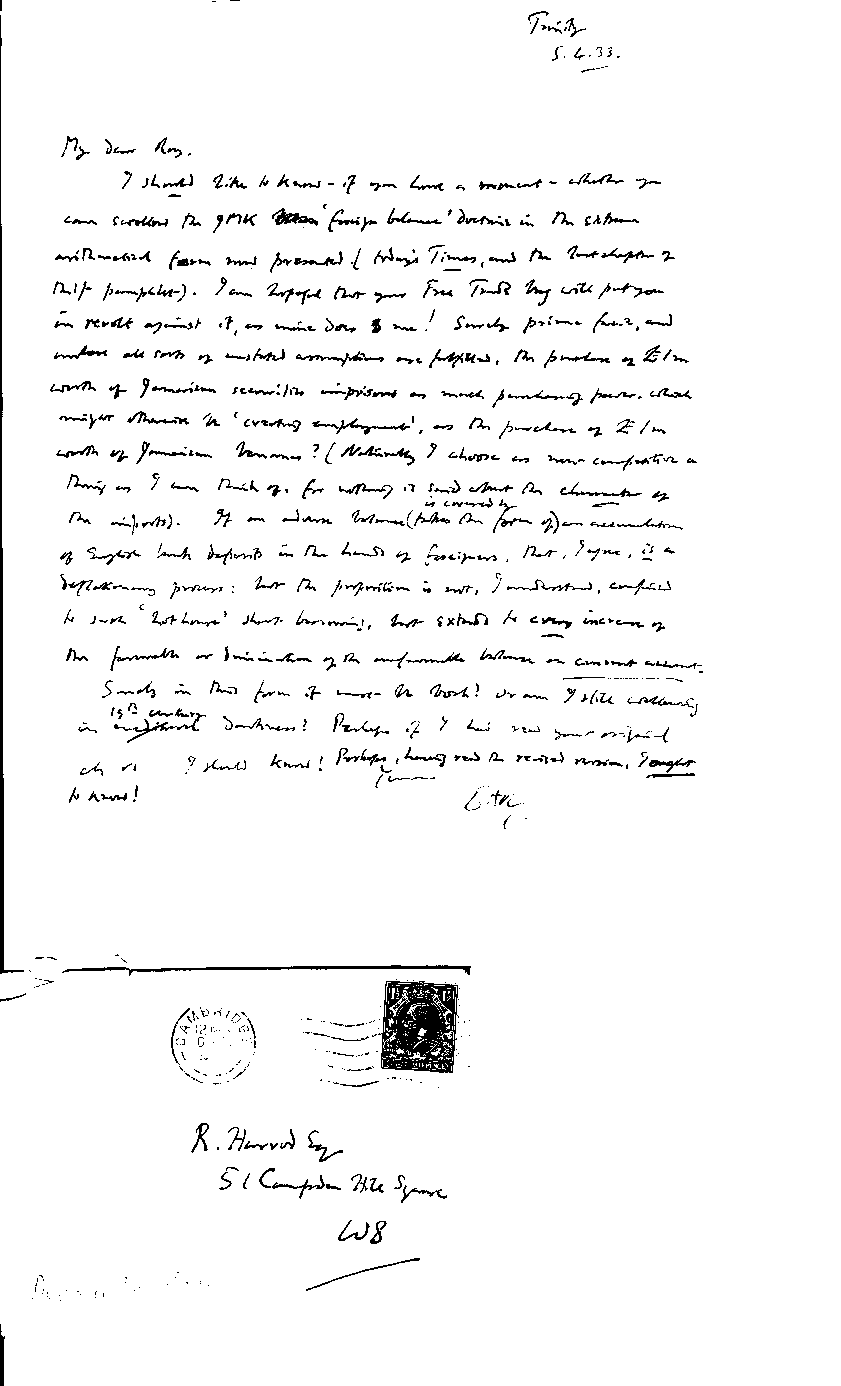 Trinity
5.4.33.
My dear Roy.
I should like to know – if you have a moment – whether you
can swallow the JMK 'foreign balance' doctrine in the extreme
arithmetical form now presented (today's Times, and the last chapter of
the pamphlet). I am hopeful that your Free Trade will put you
in revolt against it, as mine does me! Surely prima facie, and
unless all sorts of unstated assumptions are fulfilled, the purchase of £1m
worth of Jamaican securities imprisons as much purchasing power, which
might otherwise be 'creating employment', as the purchase of £1m
worth of Jamaican bananas? (Naturally I choose as non-competitive a
thing as I can think of, for nothing is said about the character of
is covered by
the imports). If an adverse balance (takes the form of) an accumulation
of English bank deposits in the hands of foreigners, that, I agree, is a
deflationary process: but the proposition is not, I understand, confined
to such 'hothouse' short borrowing, but extends to every increase of
the favourable or diminution of the unfavourable balance on current account.
Surely in this form it must be bosh? Or am I still wallowing
19th century
in darkness? Perhaps if I had read your original
ch VI I should know! Perhaps, having read the revised version, I ought
to know!
DHR
CAMBRIDGE
12
6
R. Harrod Esq
51 Campden Hill Square
W8